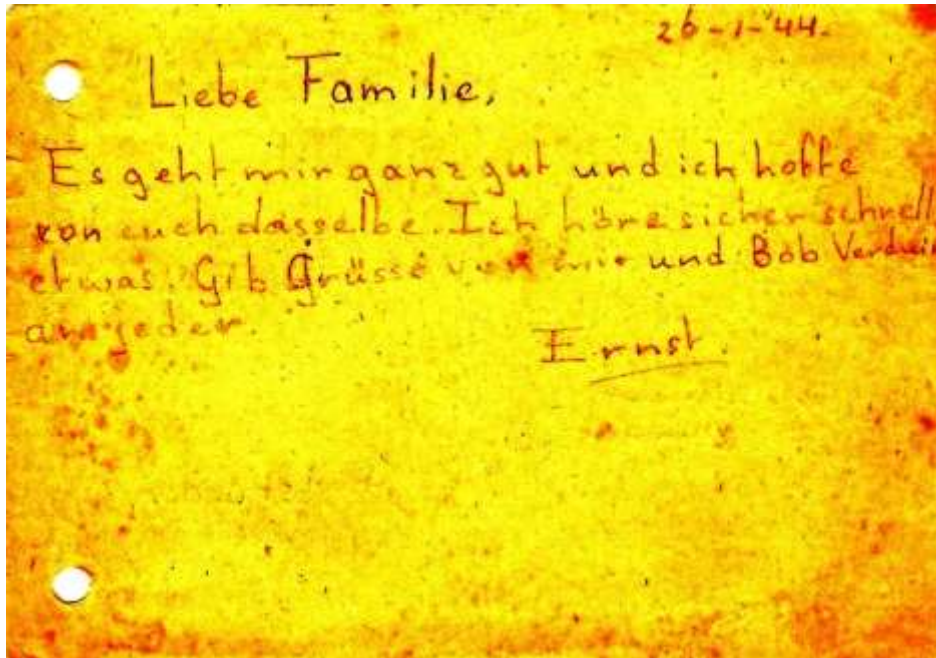 26-1-'44.
Liebe Familie,
Es geht mir ganz gut und ich hoffe
von euch dasselbe. Ich höre sicher schnell
etwas. Gib Grüsse von mir und Bob
an jeder.
Ernst.